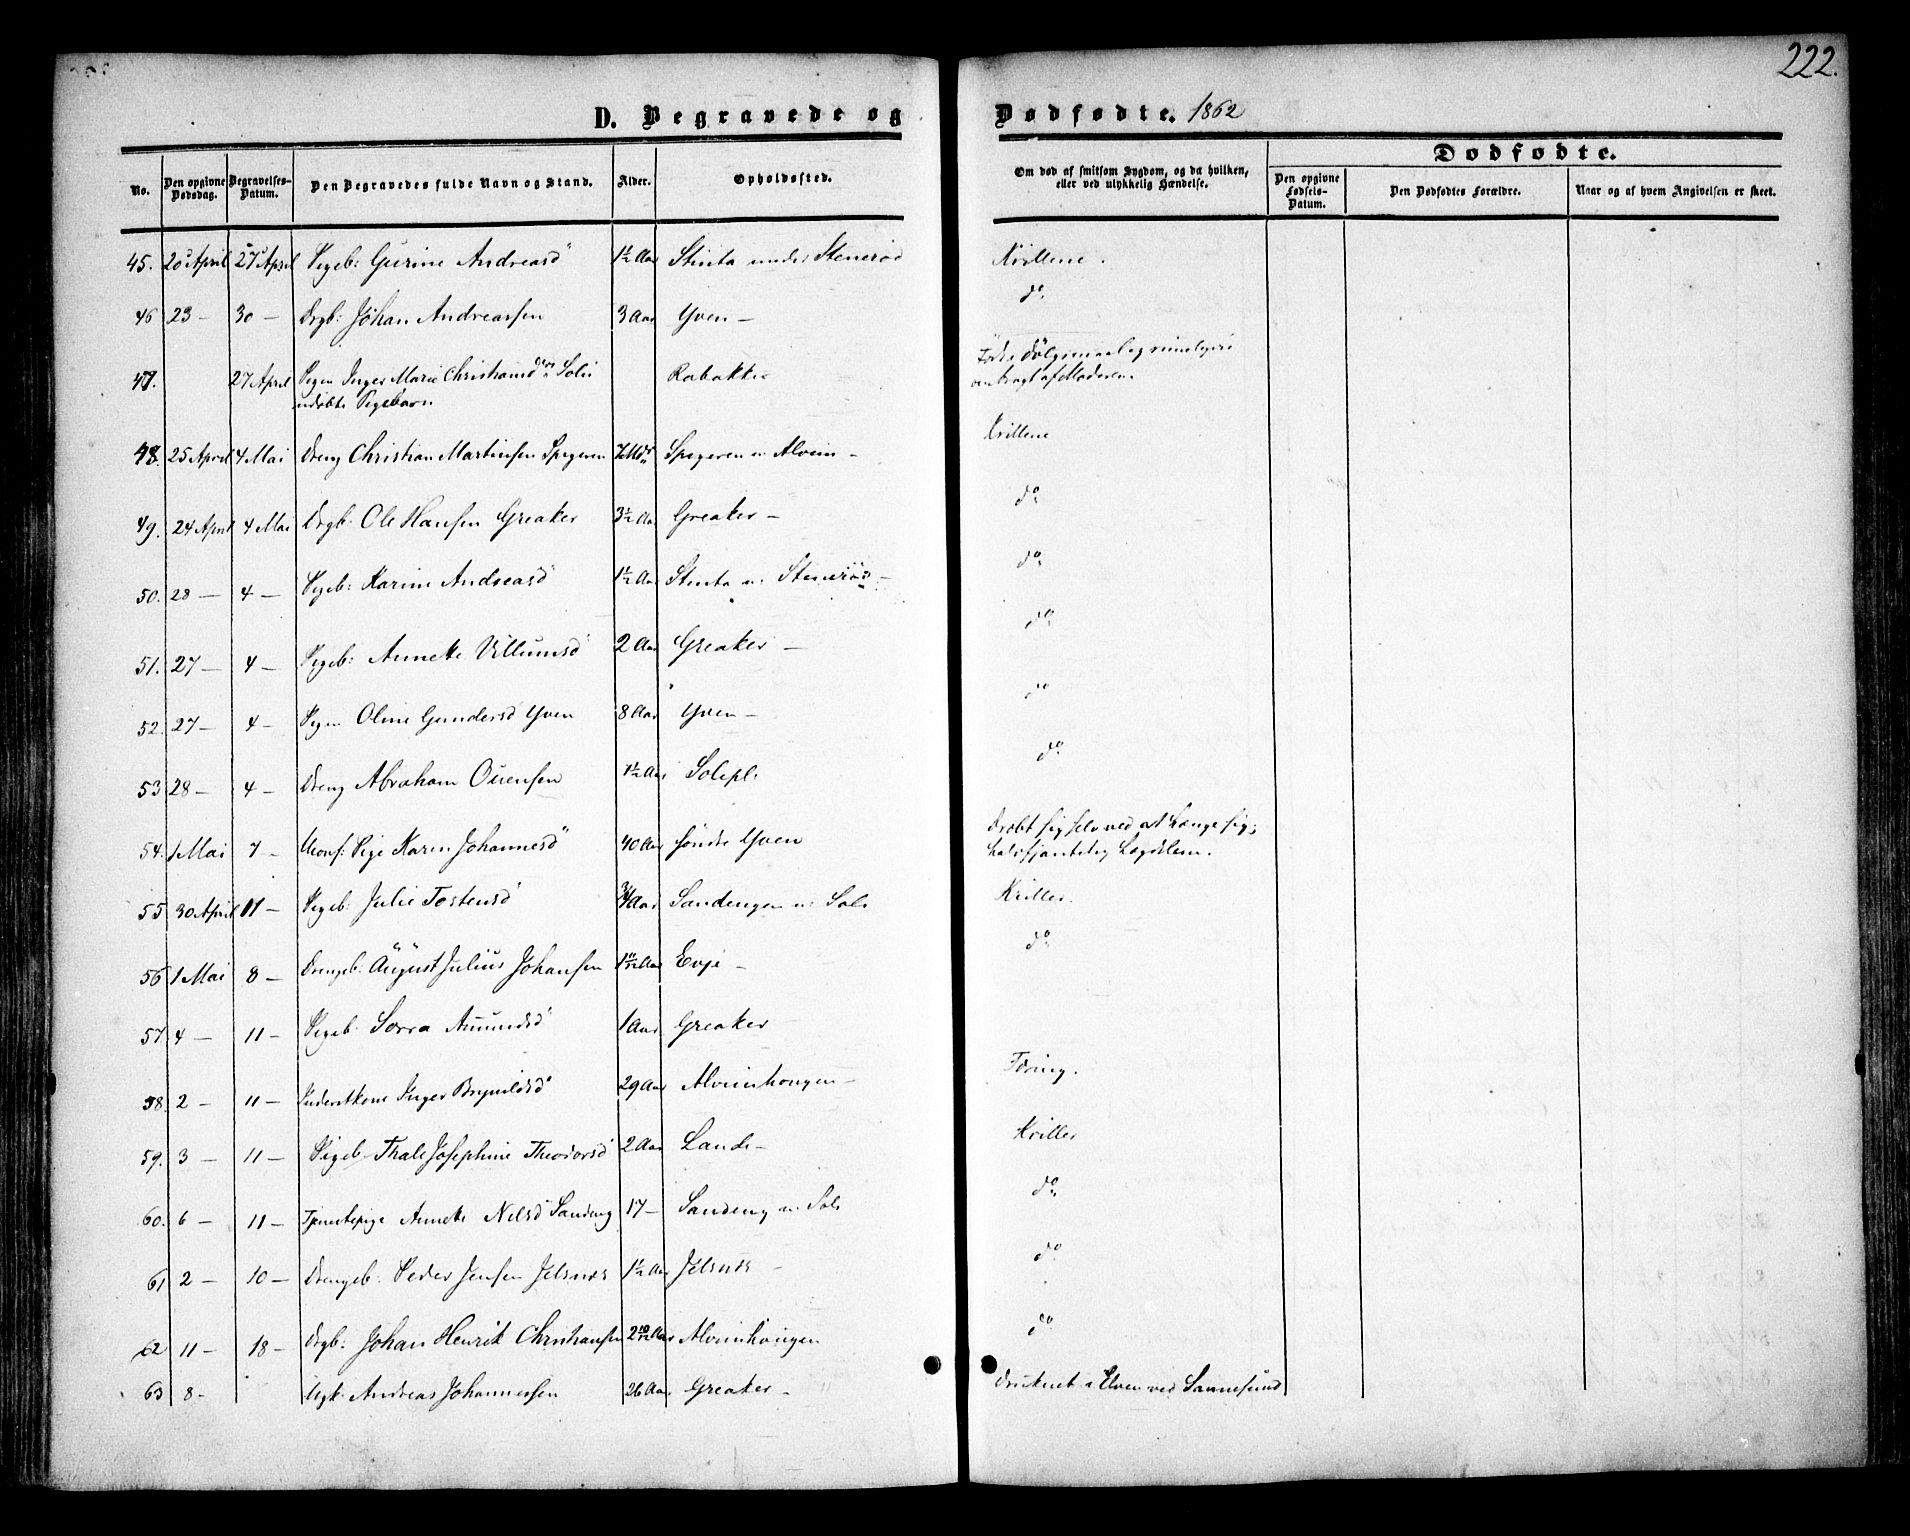 222.
D. Begravede og Dødfødte. 1862
No.
Den opgivne Dødsdag.
Begravelses-Datum.
Den Begravedes fulde Navn og Stand.
Alder.
Opholdssted.
Om død af smitsom Sygdom, og da hvilken, eller ved ulykkelig Hændelse.
Dødfødte.
Den opgivne Fødsels-Datum.
Den Dødfødtes Forældre.
Naar og af hvem Angivelsen er skeet.
45. 20 April 27 April Pigeb: Gurine Andreasd 1½ Aar Stinta under Stenerød Krillene.
46 23 — 30 — Drgb: Johan Andreassen 3 Aar Yven — do
47. 27 April Pigen Inger Marie Christiansd Solis Rabakke Født i Dølgsmaal og
udøbte Pigebarn af Moderen.
48. 25 April 4 Mai Dreng Christian Martinsen Spigeren 7 Mdr Spigeren u Alvim — Krillene
49. 24 April 4 Mai Drgb: Ole Hansen Greaker 3½ Aar Greaker — do
50. 28 — 4 — Pigeb: Karine Andreasd 1½ Aar Stinta u. Stenerød — do
51. 27 — 4 — Pigeb: Annette Villumsd 2 Aar Greaker — do
52. 27 — 4 — Pigen Oline Gundersd Yven 8 Aar Yven — do
53 28 — 4 — Dreng Abraham Ouensen 1½ Aar Solepl. do
54. 1 Mai 7 — Pige Karen Johannesd 40 Aar søndre Yven Dræbt sig selv ved at hænge sig;
halvfjantetig Lægdslem.
55 30 April 11 — Pigeb: Julie Tostensd ¾ Aar Sandengen u: Sole Kriller.
56 1 Mai 8 — Drengeb: August Julius Johansen 1 10/12 Aar Evje — do
57. 4 — 11 — Pigeb. Sorra Amundsd 1 Aar Greaker
58. 2 — 11 — Inderstkone Inger Brynildsd 29 Aar Alvimhougen — Tæring.
59. 3 — 11 — Pigeb. Thale Josephine Theodorsd 2 Aar Lande — Kriller
60. 6 — 11 — Tjenestepige Annette Nilsd Sandeng 17 — Sandeng u. Sole do
61 2 — 10 — Drengeb. Peder Jensen Jelsnes 1½ Aar Jelsnes — do
62 11 — 18 — Drgb: Johan Henrik Christiansen 2 10/12 Aar Alvimhougen do
63 8 — Ugk. Andreas Johannessen 26 Aar Greaker — Druknet i Elven ved Sannesund